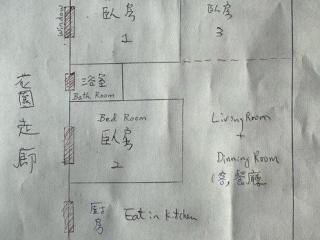 Window
臥房
1
臥房
3
浴室
Bath Room
花園走廊
Bed Room
臥房
2
Living Room
+
Dinning Room
客,餐廳
廚房
Eat in Kitchen